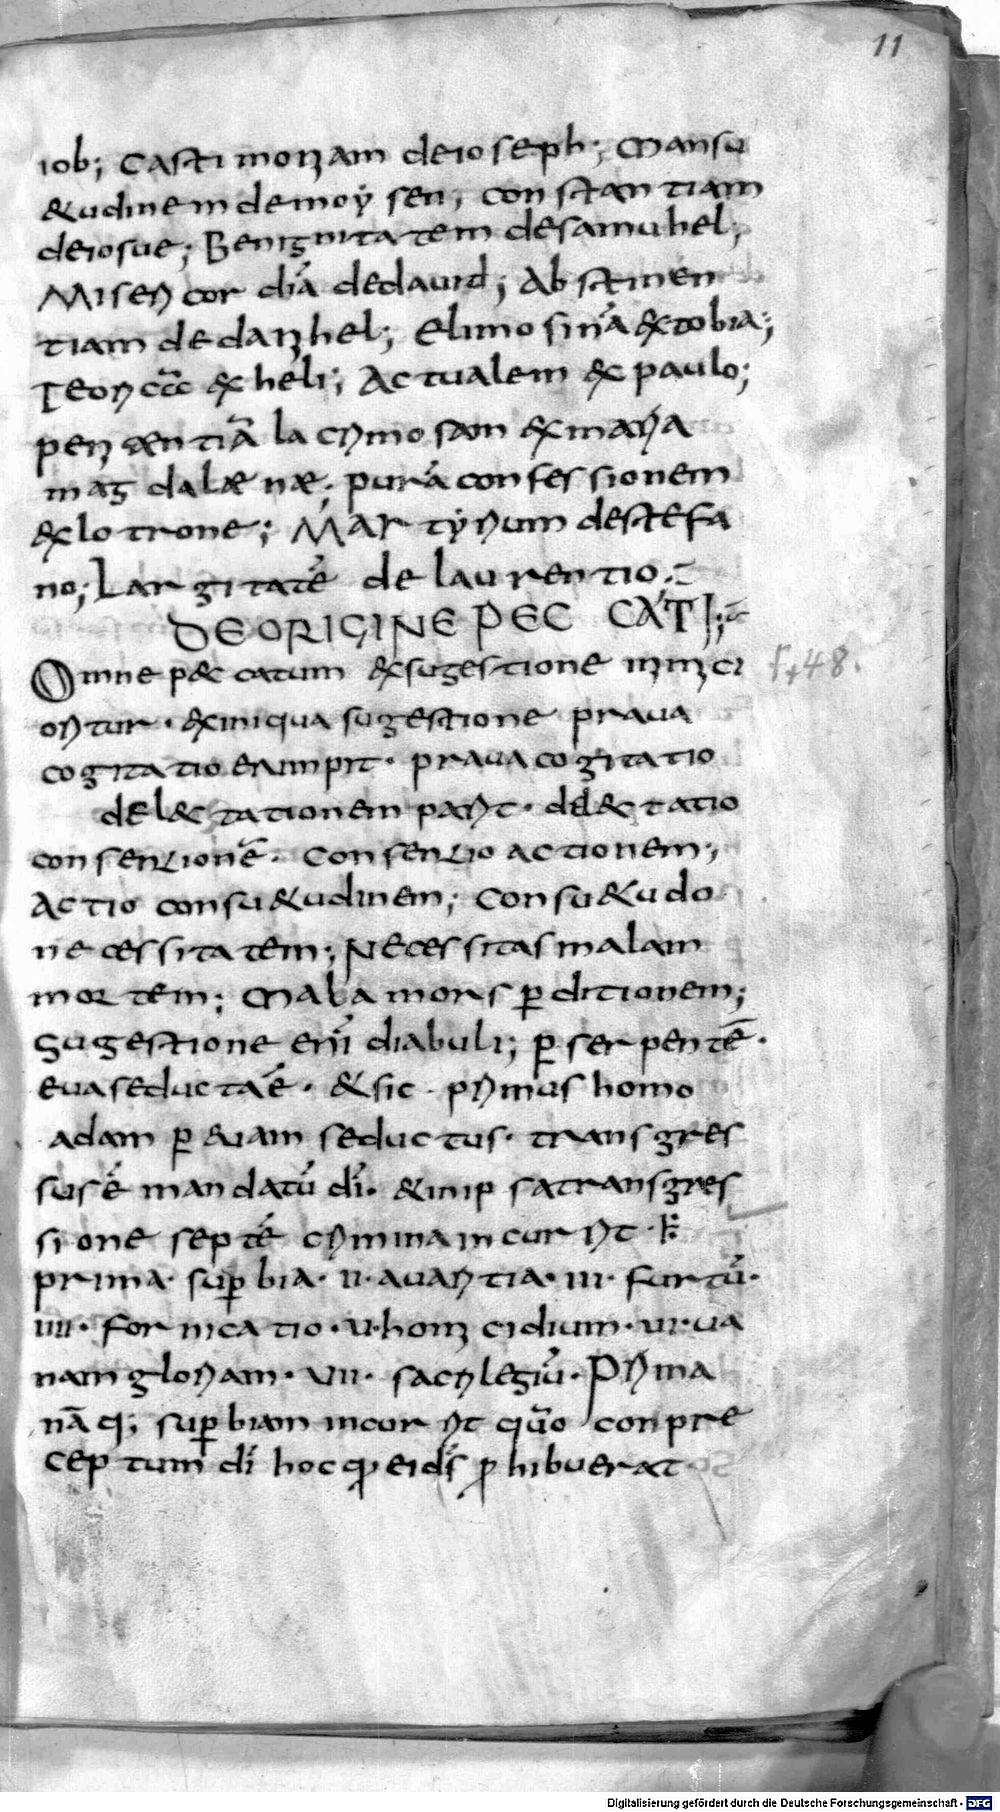 11
iob; Castimoniam de ioseph; Mansu
&udinem de moẏsen; constantiam
de iosue; Benignitatem de samuhel;
Misericordiā de dauid; Abstinen
tiam de danihel; Elimosinā & tobia;
& heli; Actualem ex paulo;
penitentiā lacrimosam ex maria
magdalænæ; purā confessionem
ex lotrone; Martẏrium de stefa
no; Largitatē de laurentio;
DE ORIGINE PECCATI;
Omne peccatum ex sugestione inici
ortur · ex iniqua sugestione praua
cogitatio erumpit · praua cogitatio
del&tationem parit · del&tatio
consentionē · Consentio actionem;
Actio consu&udinem; Consu&udo
necessitatem; Necessitas malam
mortem; Mala mors ꝑditionem;
Sugestione eni diabuli; ꝑ serpentē ·
eua seducta ē · & sic · primus homo
adam ꝑ euam seductus · transgres
sus ē mandatū dī · & in ip sa transgres
sione septē crimina incurrit ·
prima · suꝑbia · II · auaritia · III · furtū ·
IIII · fornicatio · V · homicidium · VI · ua
nam gloriam · VII · sacrilegiū · Prima
nā q; suꝑbiam incurrit quo con pre
ceptum dī hoc qd ei ds ꝓhibuerat
f. 48.
Digitalisierung gefördert durch die Deutsche Forschungsgemeinschaft - DFG